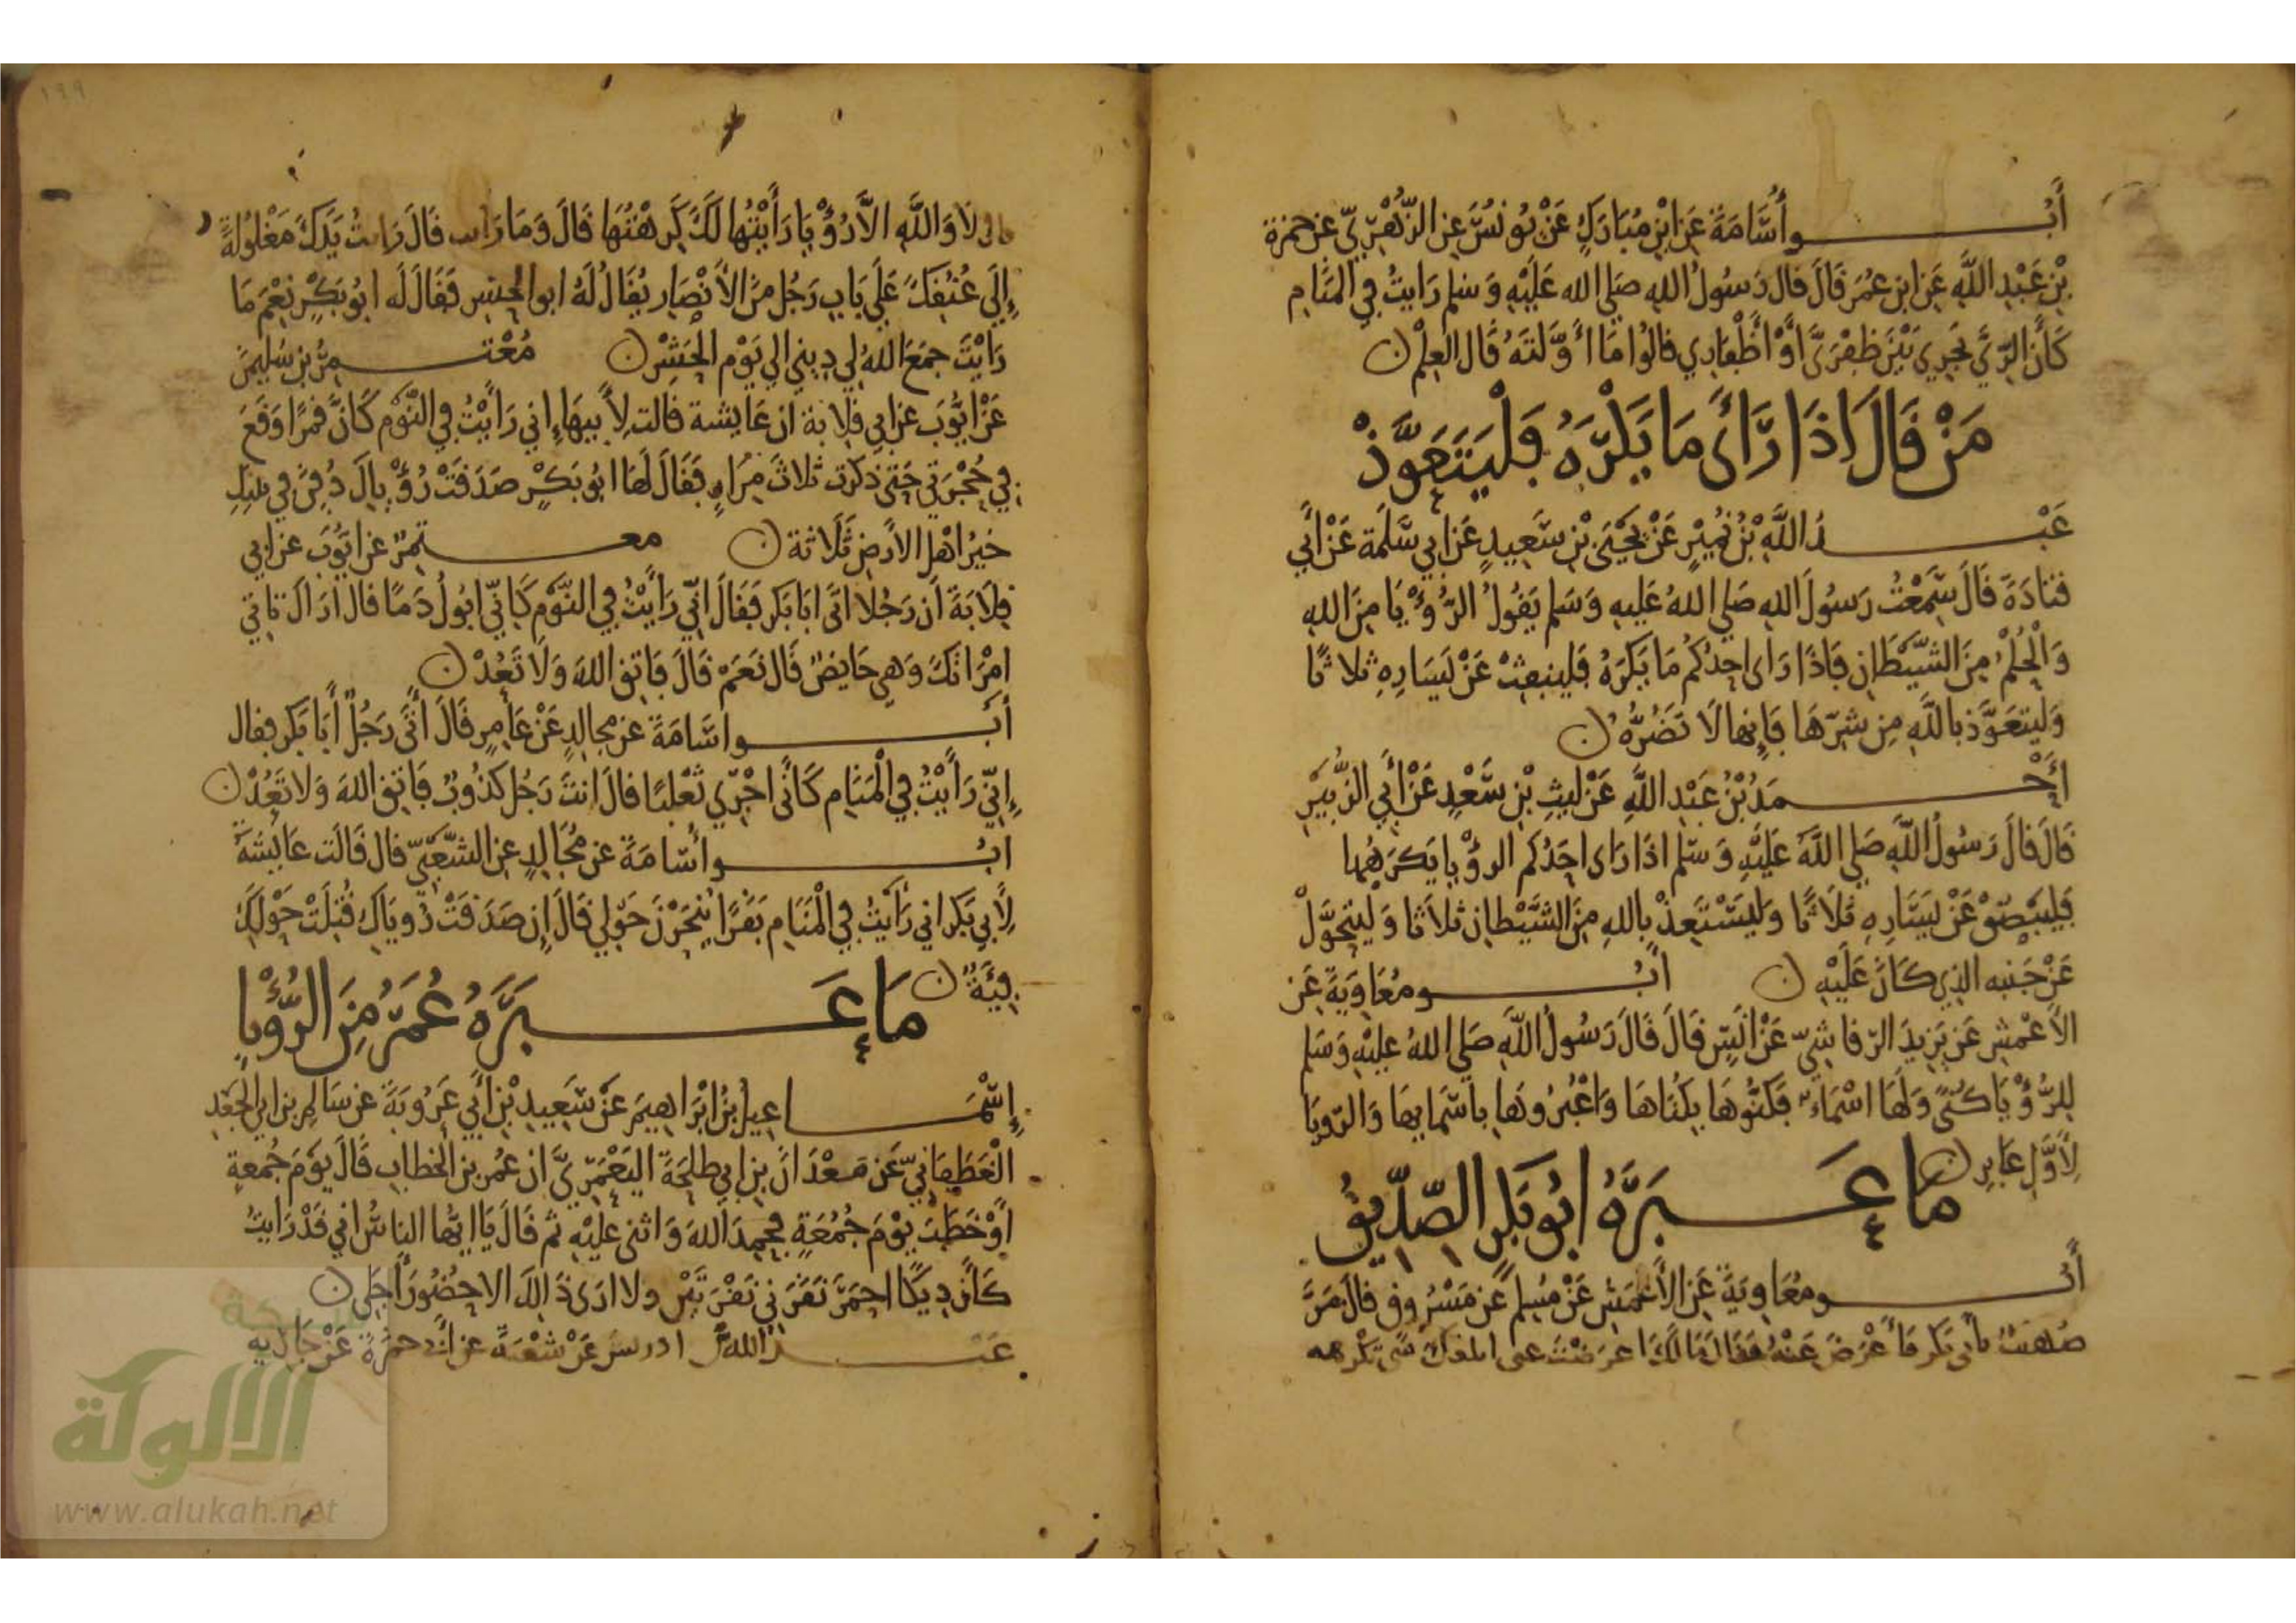 أبو أسامة عن ابن مبارك عن يونس عن الزهري عن حمزة
بن عبد الله عن ابن عمر قال قال رسول الله صلى الله عليه وسلم رايت في المنام
كأن الري يجري بين ظفري أو أظفاري قالوا ما أولته قال العلم ن
من قال اذا رأى ما يكره فليتعوذ
عبد الله بن نمير عن يحيى بن سعيد عن ابي سلمة عن أبي
قتادة قال سمعت رسول الله صلى الله عليه وسلم يقول الرؤيا من الله
والحلم من الشيطان فاذا راى احدكم ما يكره فلينفث عن يساره ثلاثا
وليتعوذ بالله من شرها فإنها لا تضره ن
أحمد بن عبد الله عن ليث بن سعد عن أبي الزبير
قال قال رسول الله صلى الله عليه وسلم اذا راى احدكم الرؤيا يكرهها
فليبصق عن يساره ثلاثا وليستعذ بالله من الشيطان ثلاثا وليتحول
عن جنبه الذي كان عليه ن أبو معاوية عن
الأعمش عن يزيد الرقاشي عن أنس قال قال رسول الله صلى الله عليه وسلم
للرؤيا كنى ولها اسماء فكنوها بكناها واعبروها باسمايها والرويا
لأول عابر ن
ما عبره ابو بكر الصديق
أبو معاوية عن الأعمش عن مسلم عن مسروق قال مر
صهيب بأبي بكر فأعرض عنه فقال مالك اعرضت عني ابلغك شي تكرهه
١٩٩
قال لا والله الا رؤيا رأيتها لك كرهتها قال وما رايت قال رايت يدك مغلولة
إلى عنقك على باب رجل من الأنصار يقال له ابو الحشر فقال له ابو بكر نعم ما
رايت جمع الله لي ديني الى يوم الحشر ن معتمر بن سليمن
عن ايوب عن ابي قلابة ان عايشة قالت لأبيها إني رأيت في النوم كأن قمرا وقع
في حجرتي حتى ذكرت ثلاث مرار فقال لها ابو بكر صدقت رؤياك دفن في بيتك
خير اهل الأرض ثلاثة ن معتمر عن ايوب عن ابي
قلابة أن رجلا اتى ابا بكر فقال اني رأيت في النوم كاني ابول دما قال اراك تاتي
امراتك وهي حايض قال نعم قال فاتق الله ولا تعد ن
أبو اسامة عن مجالد عن عامر قال أتى رجل أبا بكر فقال
إني رأيت في المنام كأني اجري ثعلبا قال انت رجل كذوب فاتق الله ولا تعد ن
ابو أسامة عن مجالد عن الشعبي قال قالت عايشة
لأبي بكر اني رأيت في المنام بقرا ينحرن حولي قال إن صدقت روياك قتلت حولك
فية ن ما عبره عمر من الرؤيا
إسماعيل بن ابراهيم عن سعيد بن أبي عروبة عن سالم بن ابي الجعد
الغطفاني عن معدان بن ابي طلحة اليعمري ان عمر بن الخطاب قال يوم جمعة
أو خطب يوم جمعة فحمد الله واثنى عليه ثم قال يا ايها الناس اني قد رايت
كأن ديكا احمر نقرني نقرتين ولا ارى ذلك الا حضور أجلي ن
عبد الله بن ادريس عن شعبة عن ابي حمزة عن جارية
شبكة
الألوكة
www.alukah.net